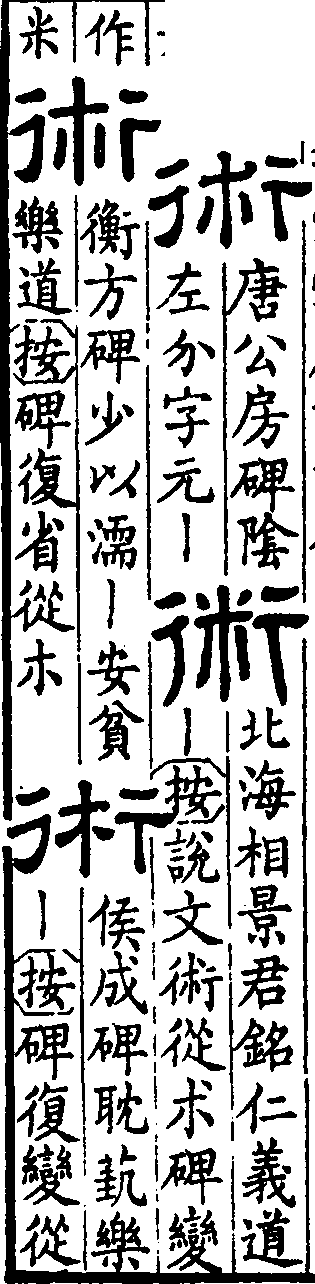 術
唐公房碑陰
左分字元丨
術
北海相景君銘仁義道
丨按說文術從术碑變
作
米
術
衡方碑少以濡丨安貧
樂道按碑復省從朩
術
侯成碑耽埶樂
丨按碑復變從